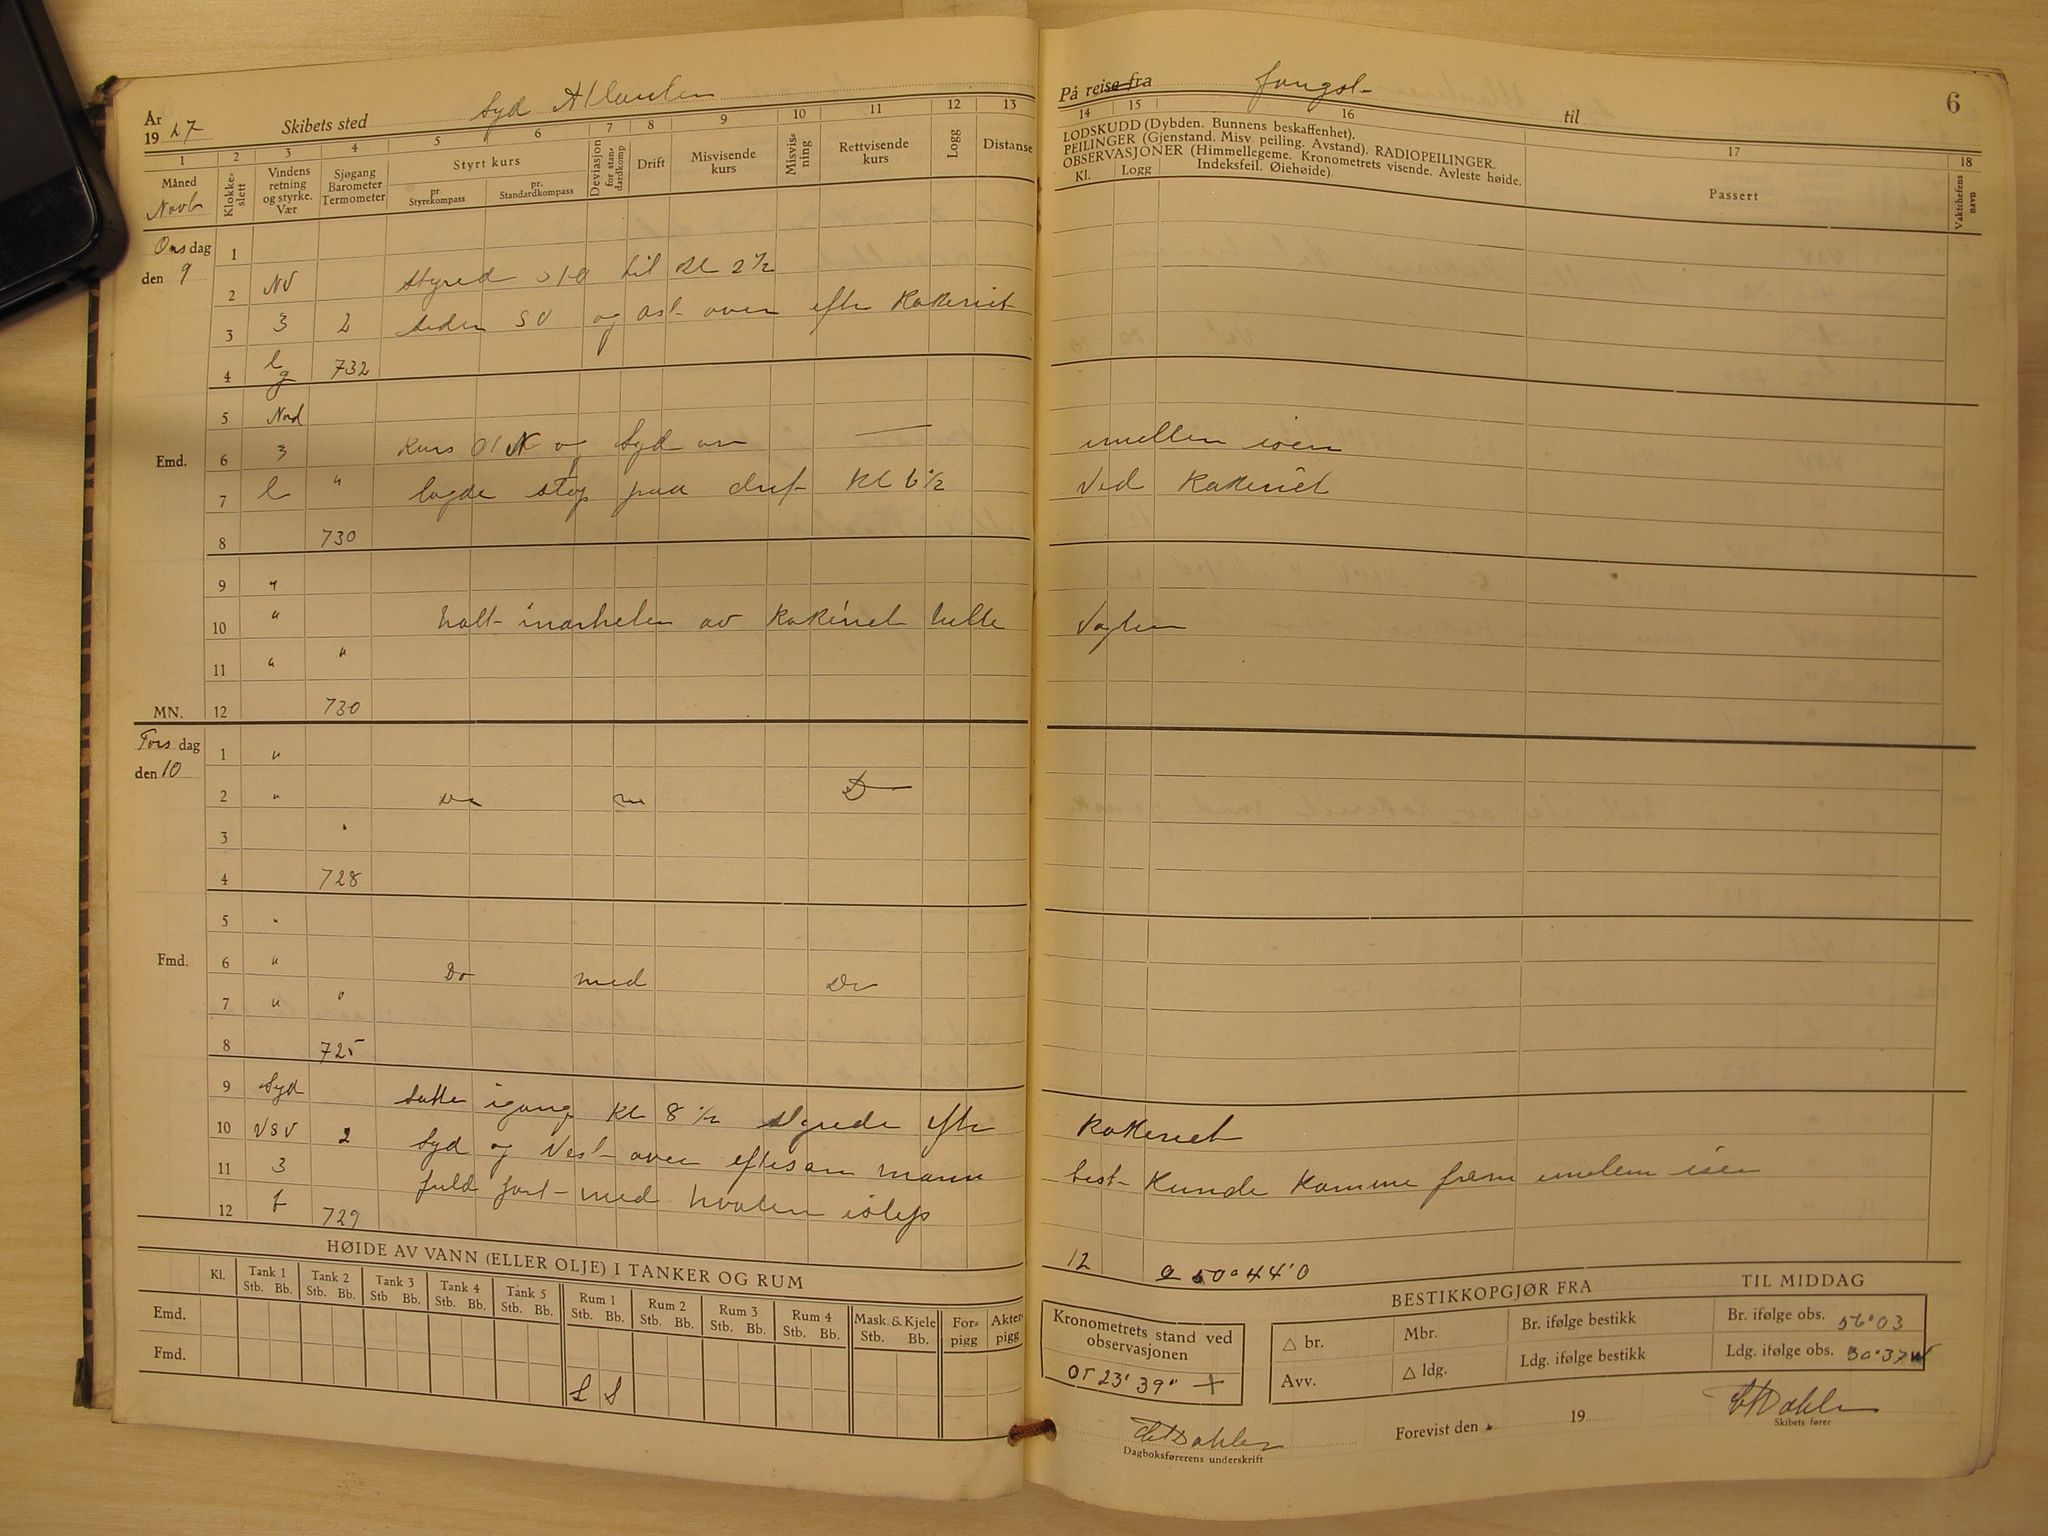 År 19 27 Skibets sted Syd Atlanten
1 2 3 4 5 6 7 8 9 10 11 12 13
Måned Novb
Klokkeslett
Vindens retning og styrke. Vær
Sjøgang Barometer Termometer
Styrt kurs
pr. Styrekompass
pr. Standardkompass
Deviasjon for standardkomp
Drift
Misvisende kurs
Misvisning
Rettvisende kurs
Logg
Distanse
Onsdag den 9
1
2 NV styred til Kl 2½
3 3 2 siden SV og ost over efter Kokeriet
4 lg 732
5 Nord
Emd.
6 3 Kurs og Syd
7 l " lagde stop paa drif Kl 6½
8 730
9 "
10 " holt inærheten av Kokeriet hille
11 " "
MN. 12 730
Torsdag den 10
1 "
2 " Do D
3 "
4 728
5 "
Fmd.
6 " Do med Do
7 " "
8 725
9 Syd satte igang Kl 8½ styrede efter
10 VSV 2 Syd og Vest over eftersom mann
11 3 fuld fart med hvalen
12 t 729
HØIDE AV VANN (ELLER OLJE) I TANKER OG RUM
Kl. Tank 1 Stb. Bb. Tank 2 Stb. Bb. Tank 3 Stb. Bb. Tank 4 Stb. Bb. Tank 5 Stb. Bb. Rum 1 Stb. Bb. Rum 2 Stb. Bb. Rum 3 Stb. Bb. Rum 4 Stb. Bb. Mask. & Kjele Stb. Bb. Forpigg Akterpigg
Emd.
Fmd.
På reise fra fangst til 6
14 15 16 17 18
LODSKUDD (Dybden. Bunnens beskaffenhet).
PEILINGER (Gjenstand. Misv. peiling. Avstand). RADIOPEILINGER.
OBSERVASJONER (Himmellegeme. Kronometrets visende. Avleste høide.
Indeksfeil. Øiehøide).
Kl. Logg Passert Vaktchefens navn
imellem isen
Ved Kokeriet
Vagten
Kokeriet
best Kunde komme frem imelem isen
12 50°44'0
BESTIKKOPGJØR FRA TIL MIDDAG
Kronometrets stand ved observasjonen
0T 23' 39" +
△ br. Mbr. Br. ifølge bestikk Br. ifølge obs. 56°03
Avv. △ ldg. Ldg. ifølge bestikk Ldg. ifølge obs. 30°37W
Dahler
Dagboksførerens underskrift
Forevist den 19
Dahler
Skibets fører